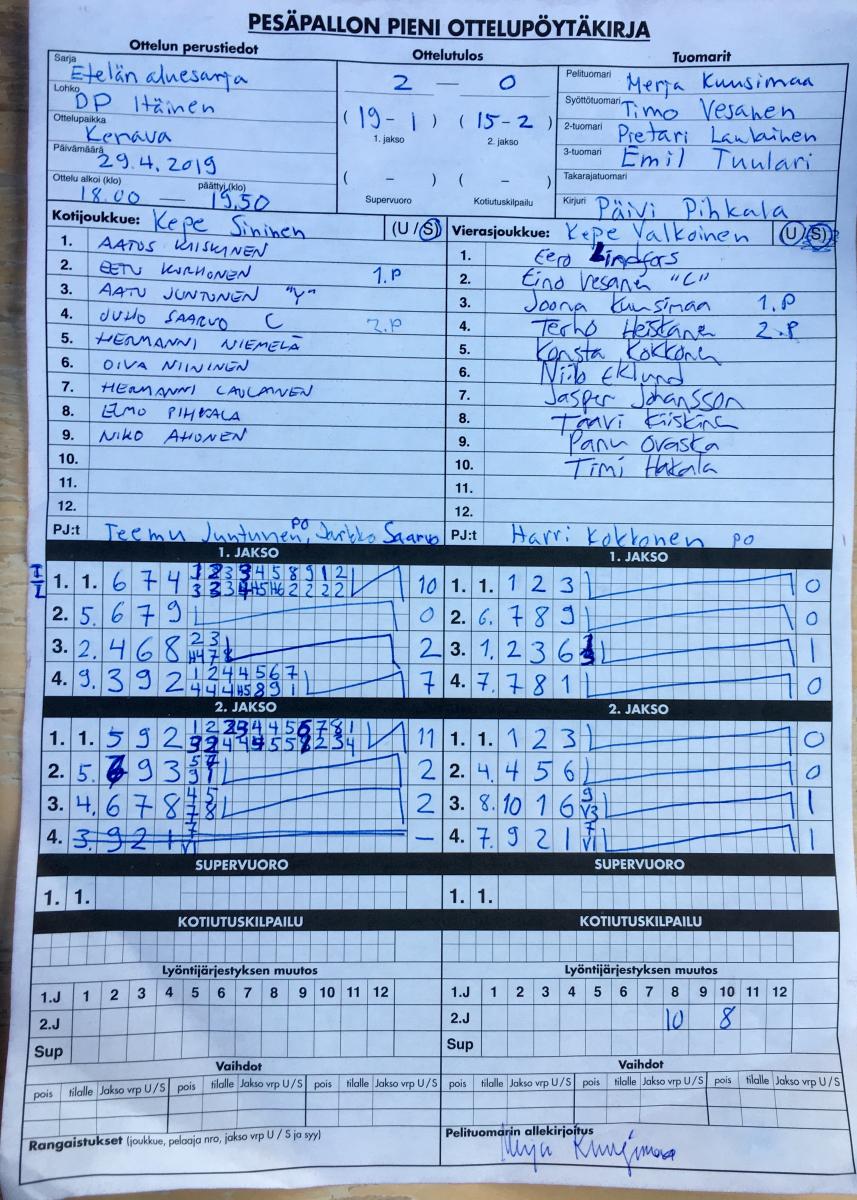 PESÄPALLON PIENI OTTELUPÖYTÄKIRJA
Ottelun perustiedot
Sarja Etelän aluesarja
Lohko DP Itäinen
Ottelupaikka Kerava
Päivämäärä 29.4.2019
Ottelu alkoi (klo) päättyi (klo)
18.00 — 19.50
Ottelutulos
2 — 0
(19 - 1) (15 - 2)
1. jakso 2. jakso
( - ) ( - )
Supervuoro Kotiutuskilpailu
Tuomarit
Pelituomari Merja Kuusimaa
Syöttötuomari Timo Vesanen
2-tuomari Pietari Laulainen
3-tuomari Emil Tuulari
Takarajatuomari
Kirjuri Päivi Pihkala
Kotijoukkue: Kepe Sininen (U / S)
1. AATOS KIISKINEN
2. EETU KORHONEN 1.P
3. AATU JUNTUNEN "Y"
4. JUHO SAARVO C 2.P
5. HERMANNI NIEMELÄ
6. OIVA NIININEN
7. HERMANNI LAULAINEN
8. ELMO PIHKALA
9. NIKO AHONEN
10.
11.
12.
PJ:t Teemu Juntunen PO, Jarkko Saarvo
Vierasjoukkue: Kepe Valkoinen (U / S)
1. Eero Lindfors
2. Eino Vesanen "C"
3. Joona Kuusimaa 1.P
4. Terho Heiskanen 2.P
5. Konsta Kokkonen
6. Niilo Eklund
7. Jasper Johansson
8. Taavi Kiiskinen
9. Panu Ovaska
10. Timi Hakala
11.
12.
PJ:t Harri Kokkonen PO
1. JAKSO
1. 1. 6 7 4 10
2. 5. 6 7 9 0
3. 2. 4 6 8 2
4. 9. 3 9 2 7
1. JAKSO
1. 1. 1 2 3 0
2. 6. 7 8 9 0
3. 1. 2 3 6 1
4. 7. 7 8 1 0
2. JAKSO
1. 1. 5 9 2 11
2. 5. 9 3 2
3. 4. 6 7 8 2
4. 3. 9 2 1 —
2. JAKSO
1. 1. 1 2 3 0
2. 4. 4 5 6 0
3. 8. 10 1 6 9 V3 1
4. 7. 9 2 1 7 V1 1
SUPERVUORO
1. 1.
SUPERVUORO
1. 1.
KOTIUTUSKILPAILU
KOTIUTUSKILPAILU
Lyöntijärjestyksen muutos
1.J 1 2 3 4 5 6 7 8 9 10 11 12
2.J
Sup
Lyöntijärjestyksen muutos
1.J 1 2 3 4 5 6 7 8 9 10 11 12
2.J 10 8
Sup
Vaihdot
pois tilalle Jakso vrp U/S pois tilalle Jakso vrp U/S pois tilalle Jakso vrp U/S
Vaihdot
pois tilalle Jakso vrp U/S pois tilalle Jakso vrp U/S pois tilalle Jakso vrp U/S
Rangaistukset (joukkue, pelaaja nro, jakso vrp U / S ja syy)
Pelituomarin allekirjoitus
Merja Kuusimaa